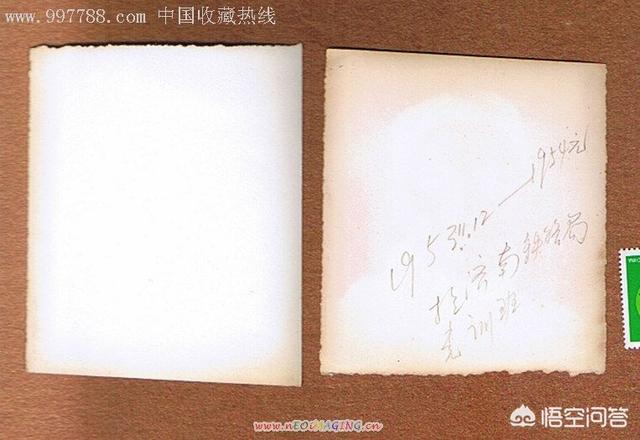 www.997788.com 中国收藏热线
1953.11.12—1954元
在济南铁路局
党训班
www.nEOiMAGiNG.cn
悟空问答